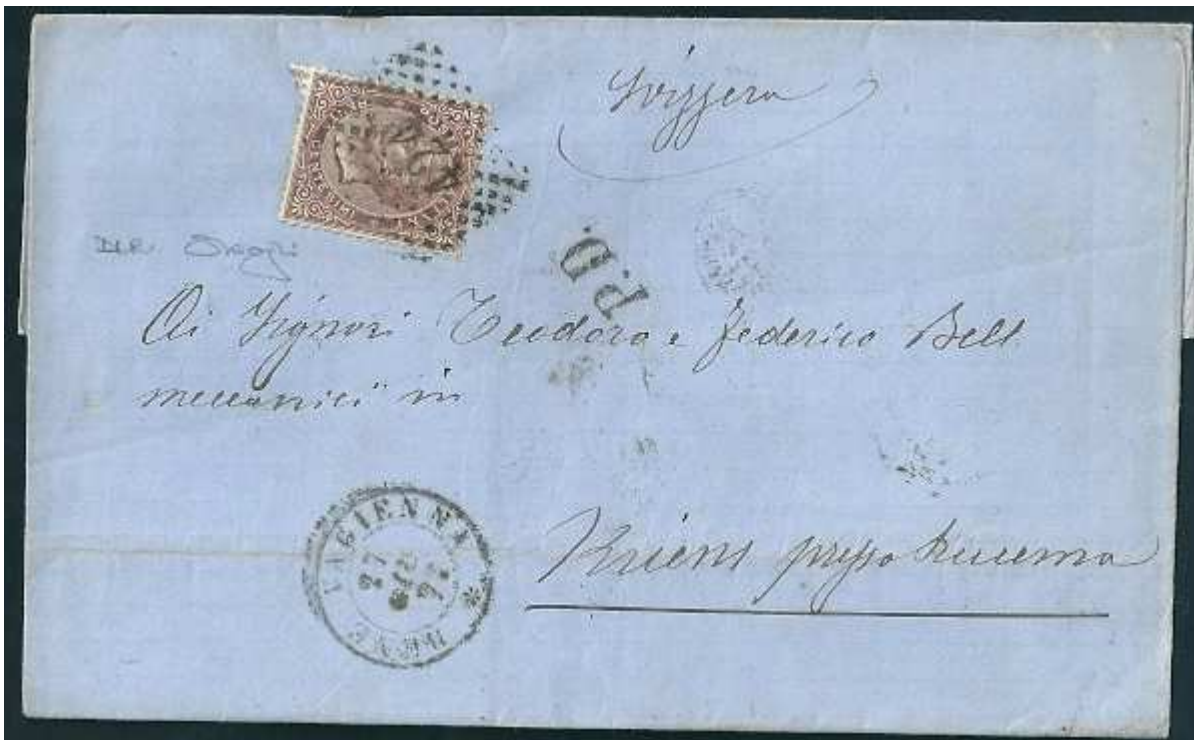 Svizzera
P.D.
Ai Signori Teodoro e Federico Bell
meccanici in
Kriens presso Lucerna
BENE VAGIENNA
27